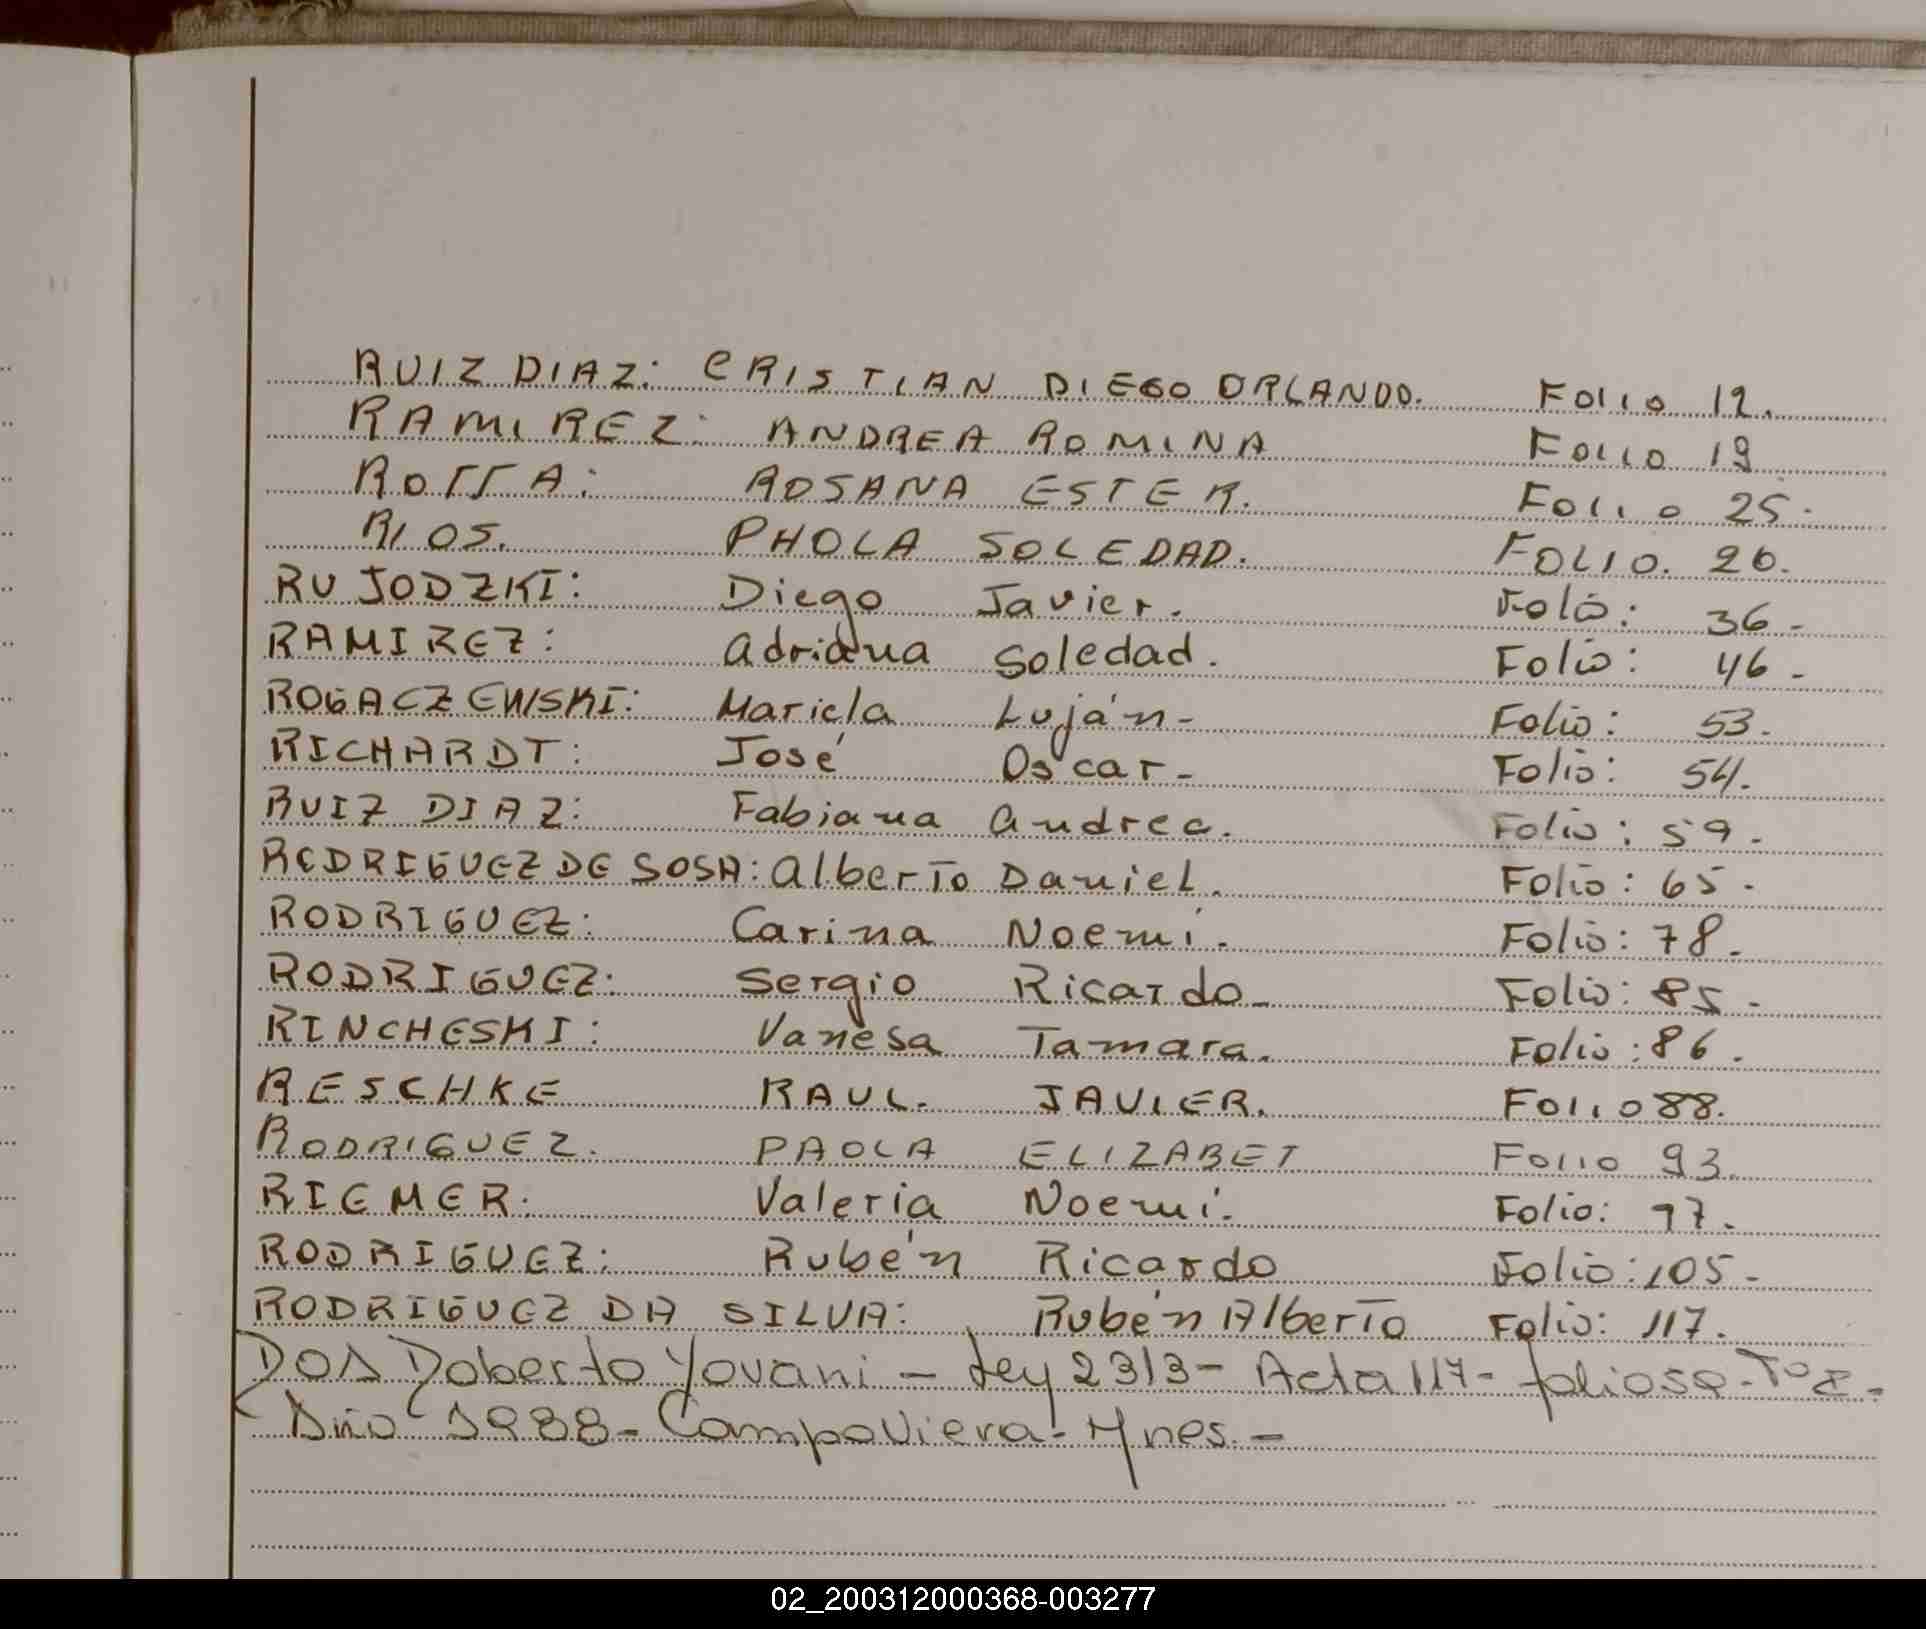 RUIZ DIAZ: CRISTIAN DIEGO ORLANDO. FOLIO 12.
RAMIREZ: ANDREA ROMINA FOLIO 19
ROSSA: ROSANA ESTER. FOLIO 25.
RIOS. PAOLA SOLEDAD. FOLIO. 26.
RUJODZKI: Diego Javier. Folio: 36-
RAMIREZ: Adriana Soledad. Folio: 46-
ROGACZEWSKI: Mariela Luján- Folio: 53.
RICHARDT: José Oscar- Folio: 54.
RUIZ DIAZ: Fabiana Andrea. Folio: 59.
RODRIGUEZ DE SOSA: Alberto Daniel. Folio: 65.
RODRIGUEZ: Carina Noemí. Folio: 78.
RODRIGUEZ: Sergio Ricardo- Folio: 85-
RINCHESKI: Vanesa Tamara. Folio: 86.
RESCHKE RAUL. JAVIER. FOLIO 88.
RODRIGUEZ. PAOLA ELIZABET FOLIO 93.
RIEMER: Valeria Noemí. Folio: 97.
RODRIGUEZ: Rubén Ricardo Folio: 105-
RODRIGUEZ DA SILVA: Rubén Alberto Folio: 117.
Yovani - Ley 2313- Acta 117- Tº 2-
Año 1988- Campo Viera- Mnes.-
02_200312000368-003277